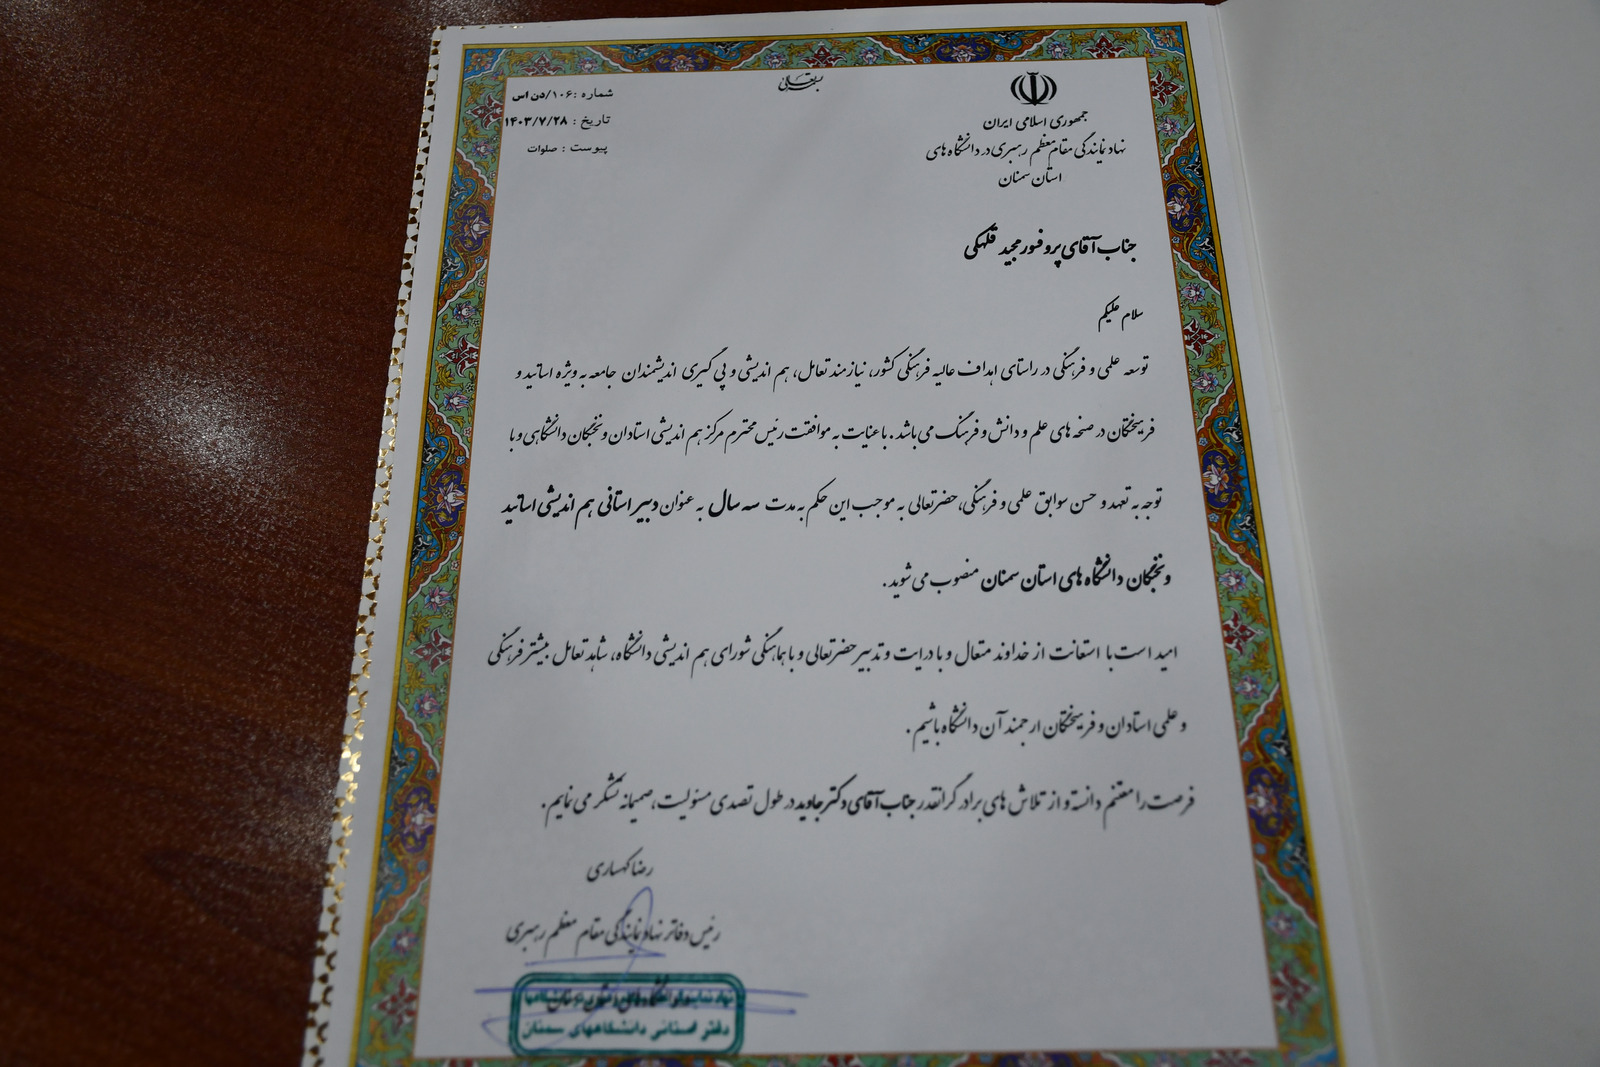 بسمه تعالی
جمهوری اسلامی ایران
نهاد نمایندگی مقام معظم رهبری در دانشگاه های
استان سمنان
شماره : ۱۰۶/دن اس
تاریخ : ۱۴۰۳/۷/۲۸
پیوست : صلوات
جناب آقای پروفسور مجید قلهکی
سلام علیکم
توسعه علمی و فرهنگی در راستای اهداف عالیه فرهنگی کشور، نیازمند تعامل، هم اندیشی و پی گیری اندیشمندان جامعه به ویژه اساتید و
فرهیختگان در صحنه های علم و دانش و فرهنگ می باشد. با عنایت به موافقت رئیس محترم مرکز هم اندیشی استادان و نخبگان دانشگاهی و با
توجه به تعهد و حسن سوابق علمی و فرهنگی، حضرتعالی به موجب این حکم به مدت سه سال به عنوان دبیر استانی هم اندیشی اساتید
و نخبگان دانشگاه های استان سمنان منصوب می شوید.
امید است با استعانت از خداوند متعال و با درایت و تدبیر حضرتعالی و با هماهنگی شورای هم اندیشی دانشگاه، شاهد تعامل بیشتر فرهنگی
و علمی استادان و فرهیختگان ارجمند آن دانشگاه باشیم.
فرصت را مغتنم دانسته و از تلاش های برادر گرانقدر جناب آقای دکتر جاوید در طول تصدی مسئولیت، صمیمانه تشکر می نمایم.
رضا کهساری
رئیس دفاتر نهاد نمایندگی مقام معظم رهبری
دفتر استانی دانشگاههای سمنان